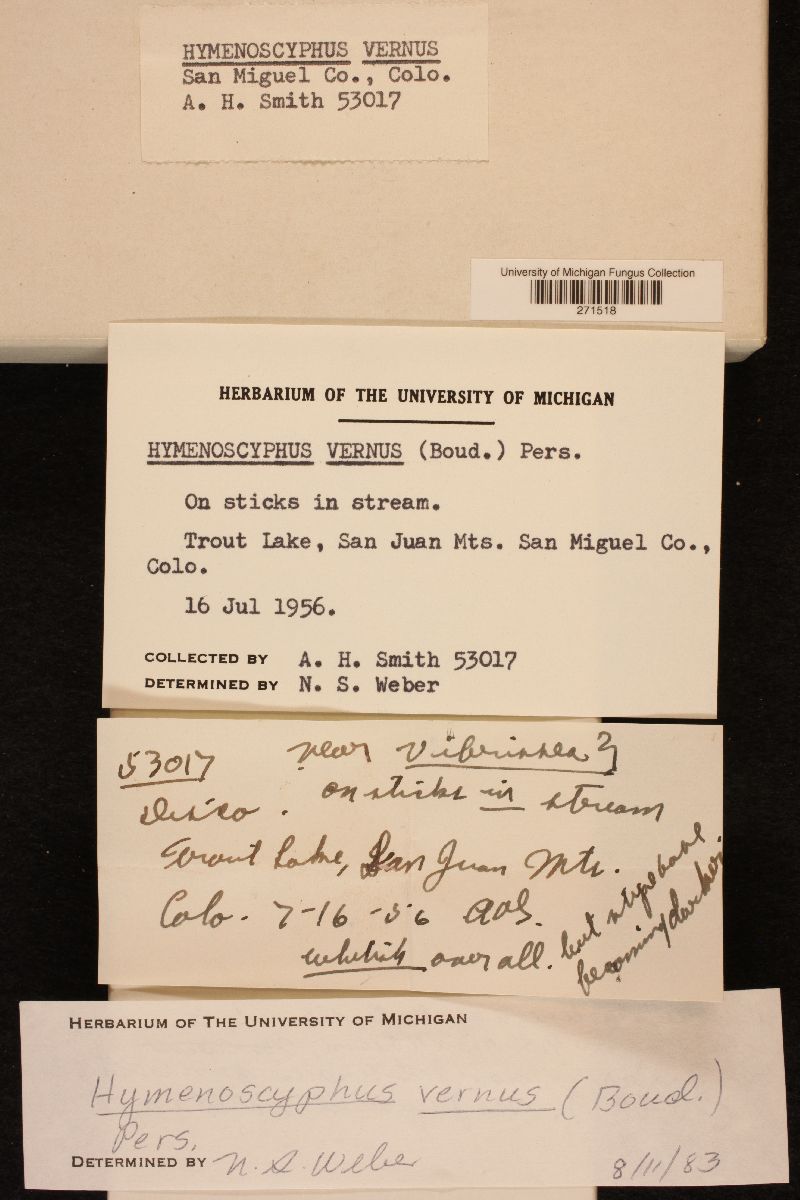 HYMENOSCYPHUS VERNUS
San Miguel Co., Colo.
A. H. Smith 53017
University of Michigan Fungus Collection
271518
HERBARIUM OF THE UNIVERSITY OF MICHIGAN
HYMENOSCYPHUS VERNUS (Boud.) Pers.
On sticks in stream.
Trout Lake, San Juan Mts. San Miguel Co.,
Colo.
16 Jul 1956.
COLLECTED BY A. H. Smith 53017
DETERMINED BY N. S. Weber
53017 near Vibrissea?
Disco. on sticks in stream
Trout Lake, San Juan Mts.
Colo. 7-16-56 AHS.
whitish over all. but stipe base
becoming darker.
HERBARIUM OF THE UNIVERSITY OF MICHIGAN
Hymenoscyphus vernus (Boud.)
Pers.
DETERMINED BY N. S. Weber 8/11/83